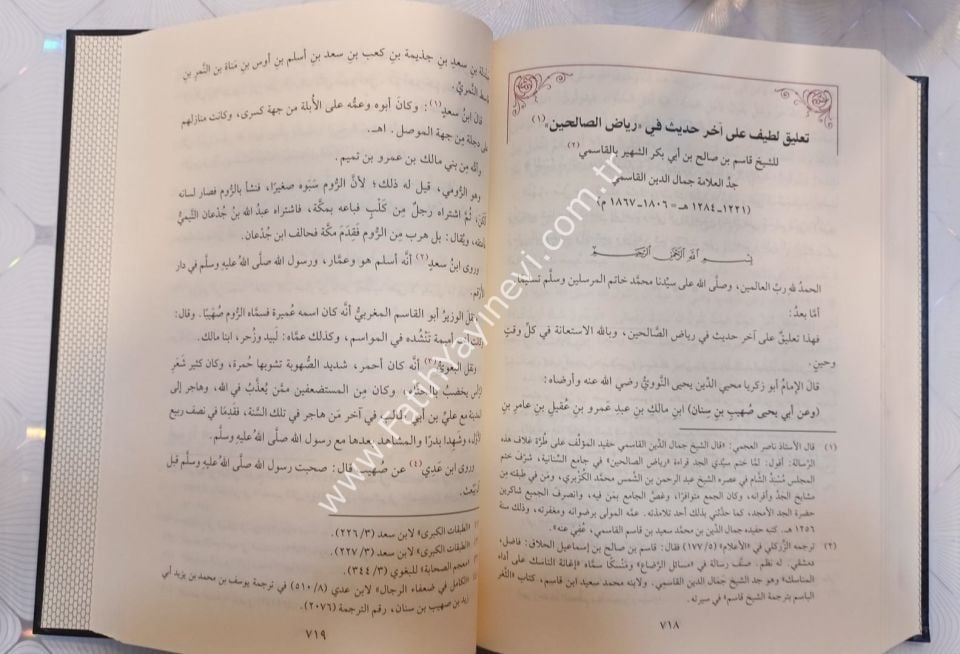 تعليق لطيف على آخر حديث في «رياض الصالحين»(١)
للشيخ قاسم بن صالح بن أبي بكر الشهير بالقاسمي(٢)
جدُّ العلامة جمال الدين القاسمي
(١٢٢١ـ١٢٨٤ هـ = ١٨٠٦ـ١٨٦٧ م)
بسم الله الرحمن الرحيم
الحمدُ لله ربِّ العالمين، وصلَّى الله على سيِّدنا محمَّد خاتم المرسلين وسلَّم تسليمًا.
أمَّا بعدُ:
فهذا تعليقٌ على آخر حديث في رياض الصَّالحين، وبالله الاستعانة في كلِّ وقتٍ
وحينٍ.
قالَ الإمامُ أبو زكريا محيي الدِّين يحيى النَّوويُّ رضي الله عنه وأرضاه:
(وعن أبي يحيى صُهيبِ بنِ سنان) ابنِ مالكِ بنِ عبدِ عمرو بنِ عُقيلِ بنِ عامرِ بنِ
(١) قال الأستاذ ناصر العجمي: «قال الشيخ جمال الدِّين القاسمي حفيد المؤلِّف على طُرَّة غلاف هذه
الرِّسالة: أقول: لمَّا ختم سيِّدي الجد قراءة «رياض الصالحين» في جامع السنانية، شرَّف ختم
المجلس مُسنِدُ الشَّام في عصره الشيخ عبد الرحمن بن الشَّمس محمَّد الكُزْبري، ومَن في طبقته مِن
مشايخ الجدِّ وأقرانه، وكان الجمع متوافرًا، وغصَّ الجامع بمَن فيه، وانصرف الجميع شاكرين
حضرة الجد الأمجد، كما حدَّثني بذلك أحد تلامذته. عمَّه المولى برضوانه ومغفرته، وذلك سنة
١٢٥٦ هـ. كتبه حفيده جمال الدِّين بن محمَّد سعيد بن قاسم القاسمي، عُفِيَ عنه».
(٢) ترجمه الزِّركلي في «الأعلام» (١٧٧/٥) فقال: قاسم بن صالح بن إسماعيل الحلاق: فاضل،
دمشقي. له نظم. صنَّف رسالة في «مسائل الرَّضاع» ومَنسكًا سمَّاه «إغاثة الناسك على أداء
المناسك» وهو جد الشيخ جمال الدِّين القاسمي. ولابنه محمَّد سعيد ابن قاسم، كتاب «الثغر
الباسم بترجمة الشيخ قاسم» في سيرته.
٧١٨
بنِ سعدِ بنِ جذيمةَ بنِ كعبِ بنِ سعدِ بنِ أسلمَ بنِ أوسِ بنِ مَناةَ بنِ النَّمرِ بنِ
النَّمريُّ.
قال ابنُ سعدٍ(١): وكانَ أبوه وعمُّه على الأُبلة من جهة كسرى، وكانت منازلهم
على دجلة مِن جهة الموصل. اهـ.
وأُمُّه مِن بني مالك بن عمرو بن تميم.
وهو الرُّومي، قيل له ذلك؛ لأنَّ الرُّوم سَبَوْه صغيرًا، فنشأ بالرُّوم فصار لسانه
أَلْكَنَ، ثُمَّ اشتراه رجلٌ مِن كَلْبٍ فباعه بمكَّة، فاشتراه عبدُ الله بنُ جُدْعان التَّيميُّ
فأعتقه، ويُقال: بل هرب مِن الرُّوم فقَدِمَ مكَّة فحالف ابن جُدْعان.
وروى ابنُ سعدٍ(٢) أنَّه أسلم هو وعمَّار، ورسول الله صلَّى اللهُ عليهِ وسلَّم في دار
الأرقم.
نقلَ الوزيرُ أبو القاسم المغربيُّ أنَّه كان اسمه عُميرة فسمَّاه الرُّوم صُهَيبًا. وقال:
أُميمة تَنْشُده في المواسم، وكذلك عمَّاه: لَبيد وزُحر، ابنا مالك.
ونقل البغويُّ(٣) أنَّه كان أحمر، شديد الصُّهوبة تشوبها حُمرة، وكان كثير شَعَرِ
الرَّأس يخضب بالحنَّاء، وكان مِن المستضعفين ممَّن يُعذَّبُ في الله، وهاجر إلى
المدينة مع عليِّ بن أبي طالب في آخر مَن هاجر في تلك السَّنة، فقَدِمَا في نصف ربيع
الأوَّل، وشَهِدا بدرًا والمشاهد بعدها مع رسول الله صلَّى اللهُ عليهِ وسلَّم.
وروى ابن عَدِي(٤) عن صُهيب قال: صحبت رسول الله صلَّى اللهُ عليهِ وسلَّم قبل
«الطبقات الكبرى» لابن سعد (٢٢٦/٣).
«الطبقات الكبرى» لابن سعد (٢٢٧/٣).
«معجم الصحابة» للبغوي (٣٤٤/٣).
«الكامل في ضعفاء الرجال» لابن عدي (٥١٠/٨) في ترجمة يوسف بن محمد بن يزيد أبي
زيد بن صهيب بن سنان، رقم الترجمة (٢٠٧٦).
٧١٩
www.Fatihyayinevi.com.tr